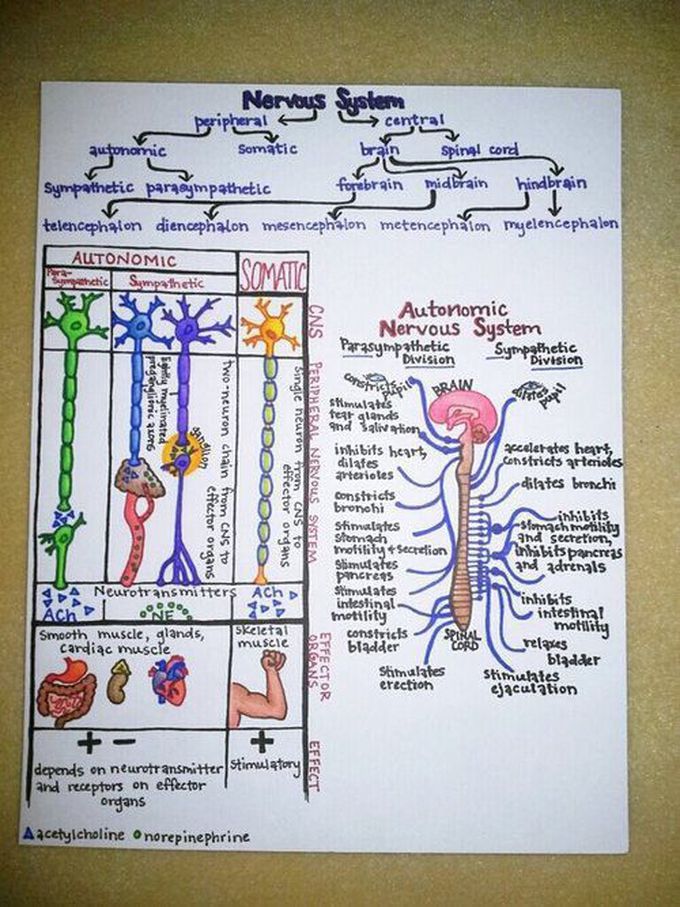 Nervous System
peripheral central
autonomic Somatic brain Spinal cord
Sympathetic parasympathetic forebrain midbrain hindbrain
telencephalon diencephalon mesencephalon metencephalon myelencephalon
AUTONOMIC
SOMATIC
Para-
Sympathetic
Sympathetic
CNS
PERIPHERAL NERVOUS SYSTEM
lightly myelinated
preganglionic axons
ganglion
two-neuron chain from CNS to
effector organs
Single neuron from CNS to
effector organs
Neurotransmitters
ACh
NE
ACh
EFFECTOR
ORGANS
Smooth muscle, glands,
cardiac muscle
Skeletal
muscle
EFFECT
+ -
depends on neurotransmitter
and receptors on effector
organs
+
Stimulatory
acetylcholine norepinephrine
Autonomic
Nervous System
Parasympathetic
Division
Sympathetic
Division
BRAIN
SPINAL
CORD
constricts
pupil
stimulates
tear glands
and salivation
inhibits heart,
dilates
arterioles
constricts
bronchi
Stimulates
Stomach
motility + secretion
Stimulates
pancreas
Stimulates
intestinal
motility
constricts
bladder
Stimulates
erection
dilates
pupil
accelerates heart,
constricts arterioles
dilates bronchi
inhibits
stomach motility
and secretion,
inhibits pancreas
and adrenals
inhibits
intestinal
motility
relaxes
bladder
Stimulates
ejaculation